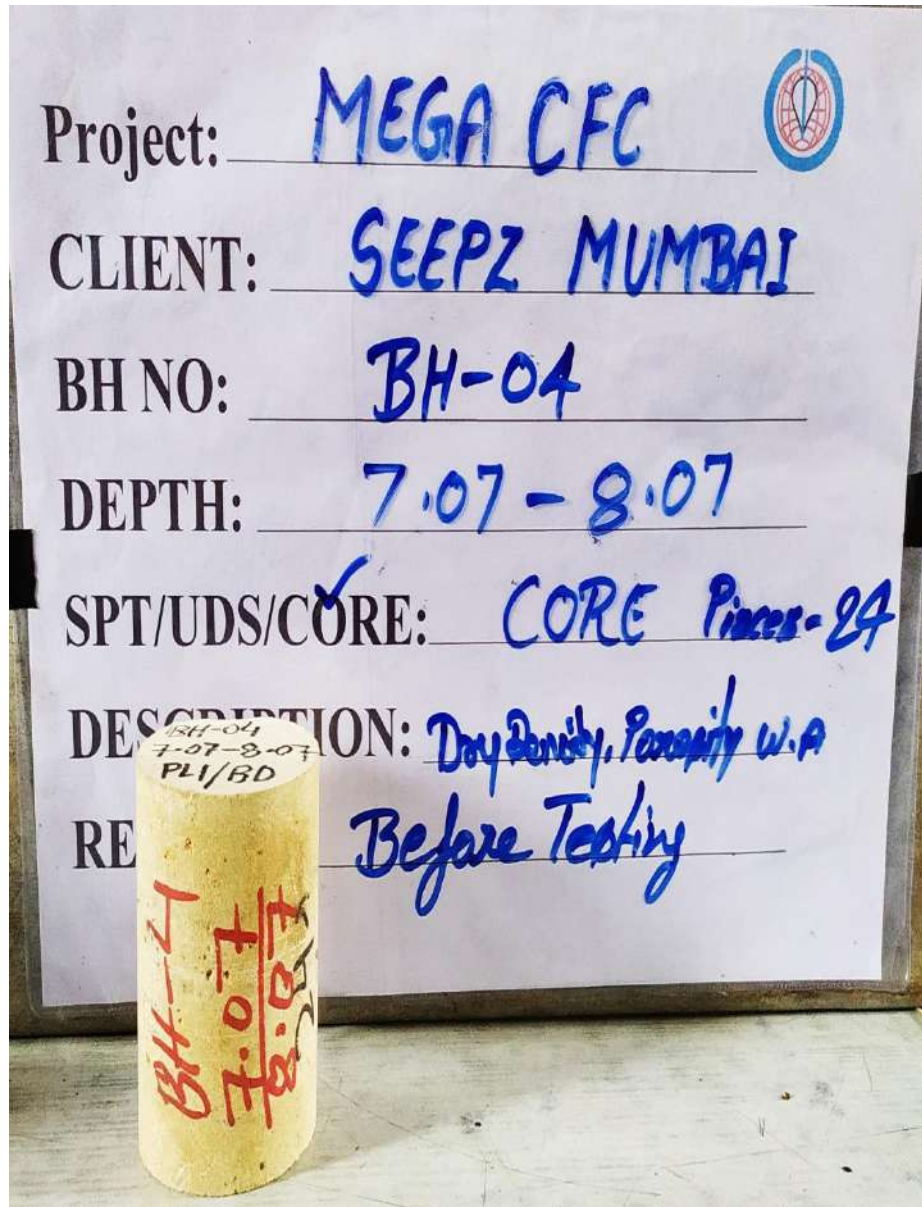 Project: MEGA CFC
CLIENT: SEEPZ MUMBAI
BH NO: BH-04
DEPTH: 7.07 - 8.07
SPT/UDS/CORE: CORE Pieces-24
DESCRIPTION: Dry Density, Porosity W.A
RE Before Testing
BH-04
7.07-8.07
PLI/BD
BH-4
7.07
8.07
24